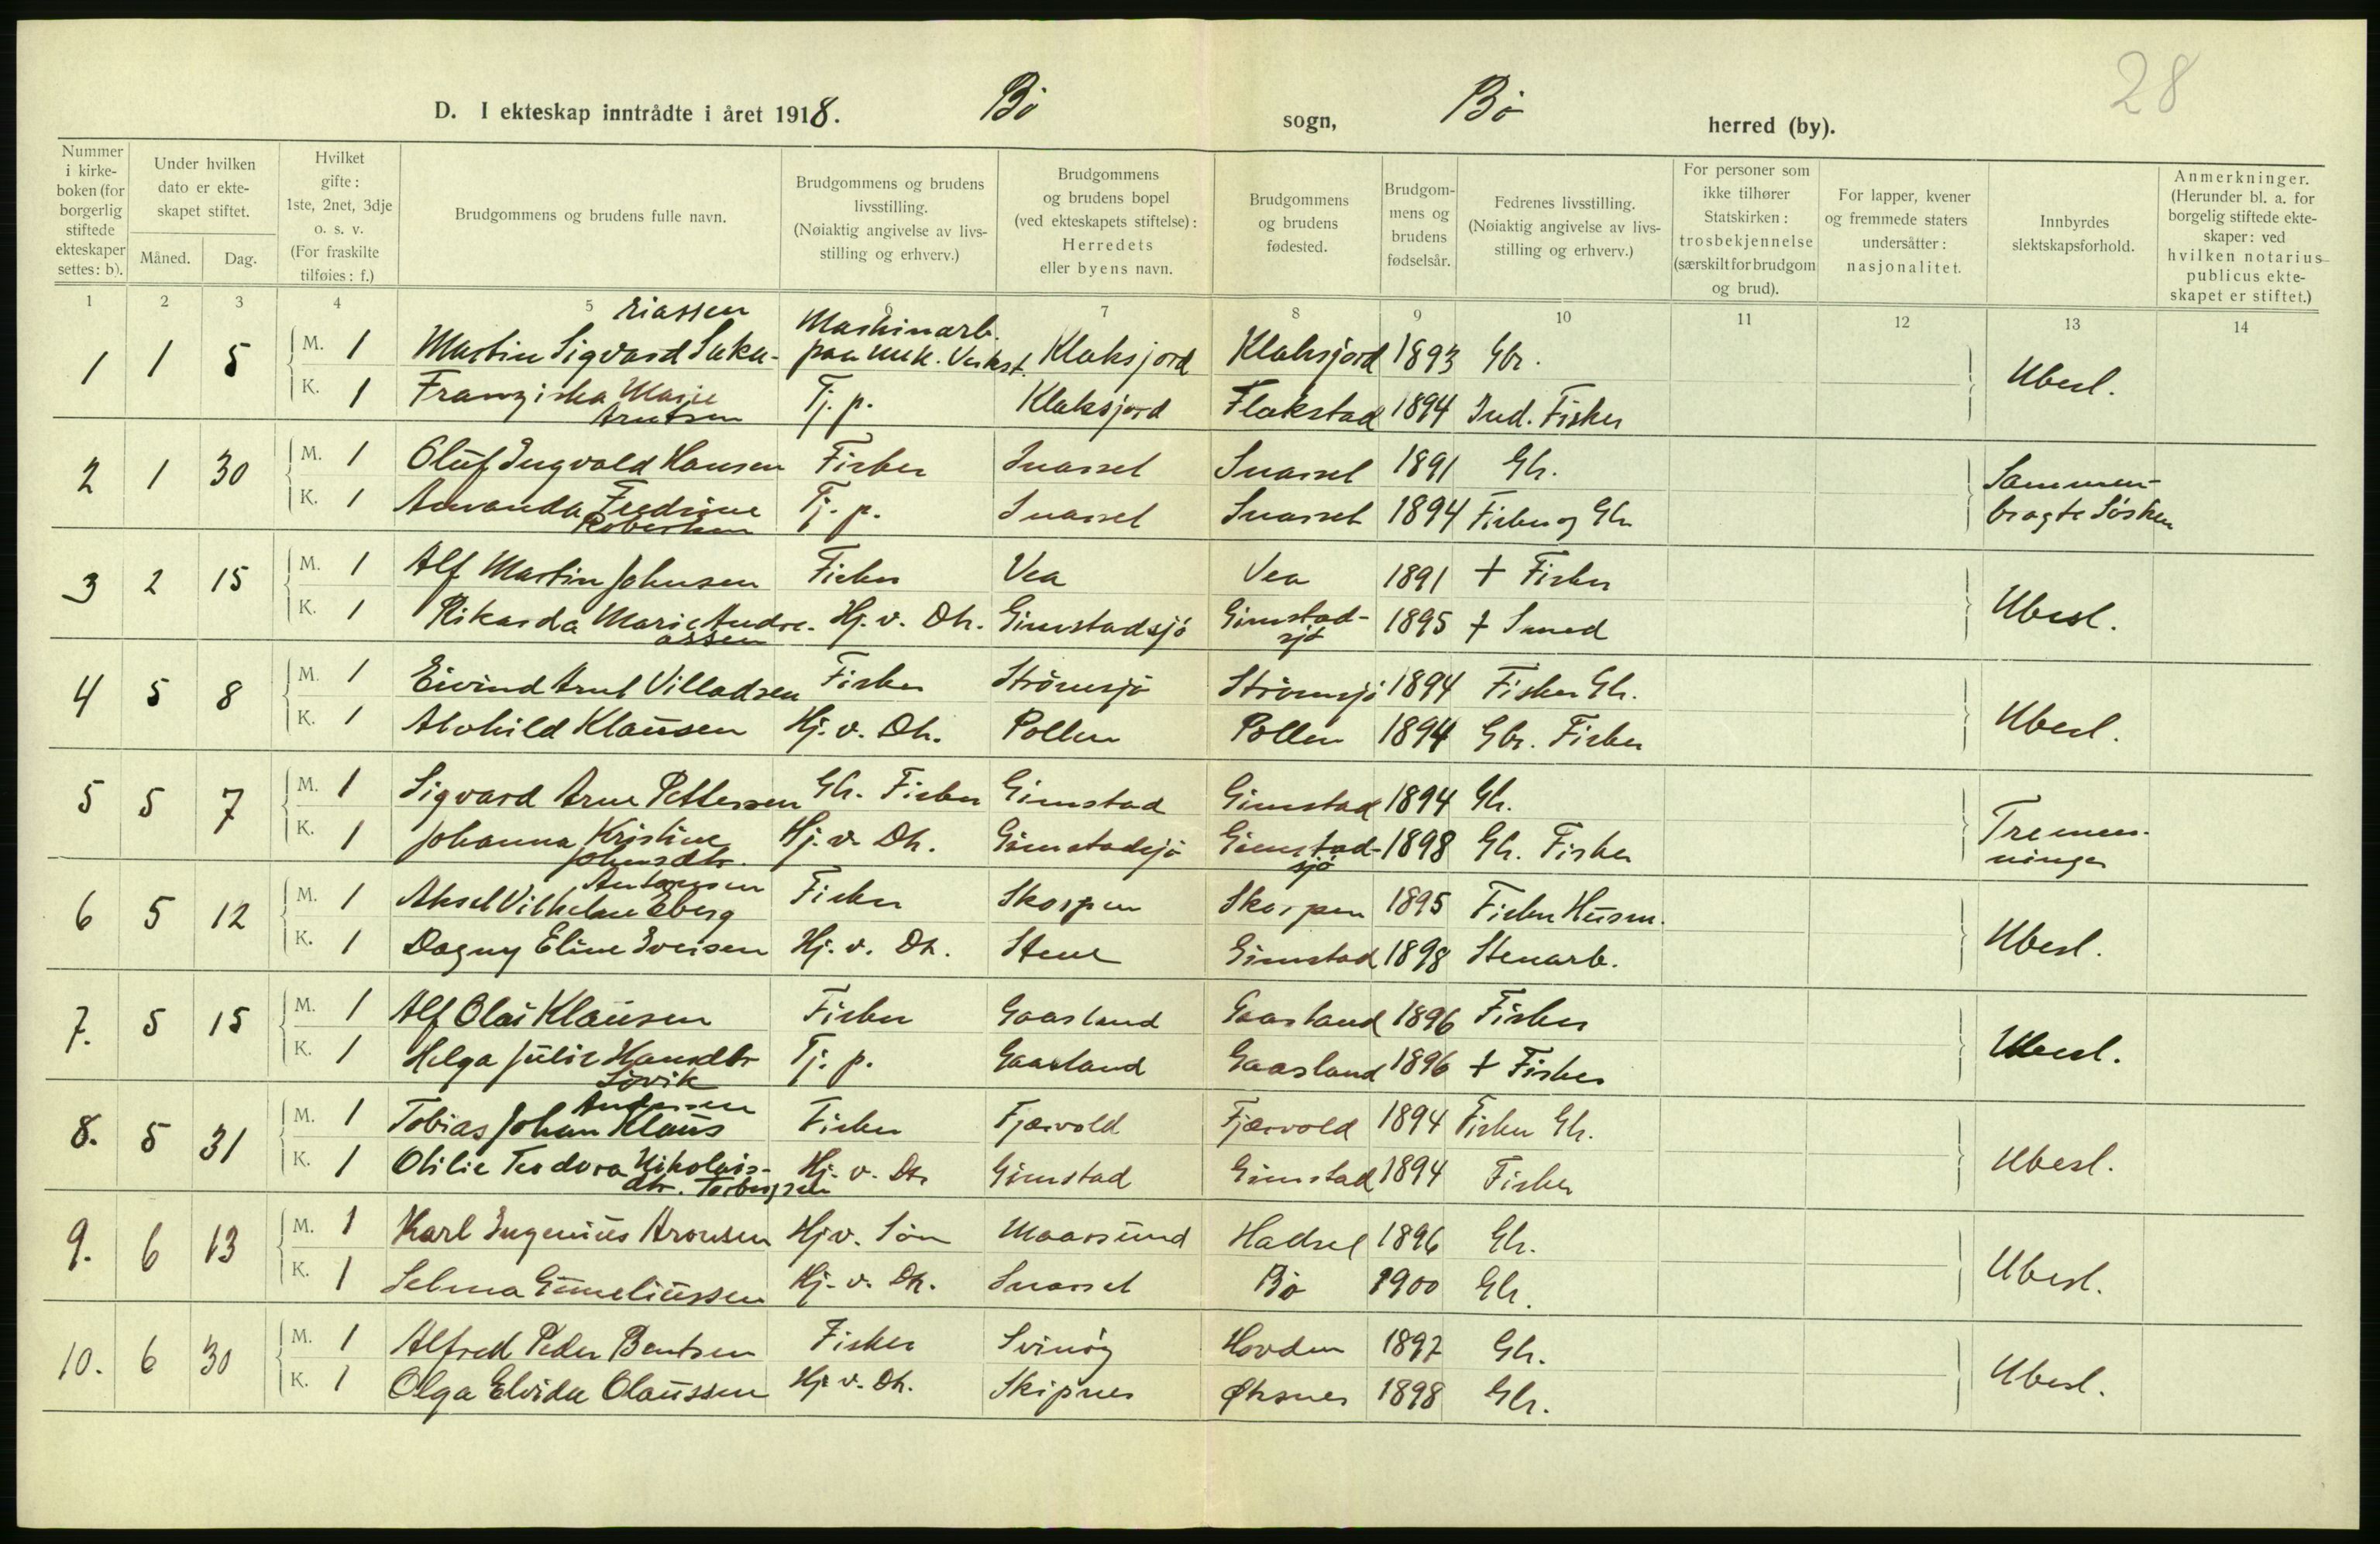 28
D. I ekteskap inntrådte i året 1918. Bø sogn, Bø herred (by).
Nummer i kirke-boken (for borgerlig stiftede ekteskaper settes: b).
Under hvilken dato er ekte-skapet stiftet.
Måned. Dag.
Hvilket gifte: 1ste, 2net, 3dje o. s. v. (For fraskilte tilføies: f.)
Brudgommens og brudens fulle navn.
Brudgommens og brudens livsstilling. (Nøiaktig angivelse av livs-stilling og erhverv.)
Brudgommens og brudens bopel (ved ekteskapets stiftelse): Herredets eller byens navn.
Brudgommens og brudens fødested.
Brudgom-mens og brudens fødselsår.
Fedrenes livsstilling. (Nøiaktig angivelse av livs-stilling og erhverv.)
For personer som ikke tilhører Statskirken: trosbekjennelse (særskilt for brudgom og brud).
For lapper, kvener og fremmede staters undersåtter: nasjonalitet.
Innbyrdes slektskapsforhold.
Anmerkninger. (Herunder bl. a. for borgelig stiftede ekte-skaper: ved hvilken notarius publicus ekte-skapet er stiftet.)
1 2 3 4 5 6 7 8 9 10 11 12 13 14
1 1 5 M. 1 Martin Sigvard Saka-riassen Maskinarb. paa mek. Verkst. Klaksjord Klaksjord 1893 Gbr. Ubesl.
K. 1 Franziska Marie Arntsen Tj. p. Klaksjord Flakstad 1894 Ind. Fisker
2 1 30 M. 1 Oluf Ingvald Hansen Fisker Snarset Snarset 1891 Gb. Sammen-
K. 1 Amanda Fredrine Robertsen Tj. p. Snarset Snarset 1894 Fisker og Gb. bragte Søsken
3 2 15 M. 1 Alf Martin Johnsen Fisker Vea Vea 1891 + Fisker Ubesl.
K. 1 Rikarda Marie Andre-assen Hj. v. Dh. Gimstadsjö Gimstad-sjö 1895 + Smed
4 5 8 M. 1 Eivind Arnt Villadsen Fisker Strömsjö Strömsjö 1894 Fisker Gb. Ubesl.
K. 1 Alvhild Klaüsen Hj. v. Dh. Pollen Pollen 1894 Gbr. Fisker
5 5 7 M. 1 Sigvard Arne Pettersen Gb. Fisker Gimstad Gimstad 1894 Gb. Tremen-
K. 1 Johanna Kristine Johnsdtr. Hj. v. Dh. Gimstadsjö Gimstad-sjö 1898 Gb. Fisker ninger
6 5 12 M. 1 Aksel Vilhelm Eberg Antonsen Fisker Skorpen Skorpen 1895 Fisker Hüsm. Ubesl.
K. 1 Dagny Eline Iversen Hj. v. Dh. Stene Gimstad 1898 Stenarb.
7. 5 15 M. 1 Alf Olai Klaüsen Fisker Gaasland Gaasland 1896 Fisker Ubesl.
K. 1 Helga Jülie Hansdtr Sövik Tj. p. Gaasland Gaasland 1896 + Fisker
8. 5 31 M. 1 Tobias Johan Klaüs Fisker Fjærvold Fjærvold 1894 Fisker Gb. Ubesl.
K. 1 Otilie Teodora Nikolais-dtr. Torbergsen Hj. v. Dh Gimstad Gimstad 1894 Fisker
9. 6 13 M. 1 Karl Ingenüis Aronsen Hj v. Sön Maarsünd Hadsel 1896 Gb. Ubesl.
K. 1 Selma Eümeliüssen Hj. v. Dh. Snarset Bö 1900 Gb.
10. 6 30 M. 1 Alfred Peder Bentsen Fisker Svinöy Hovden 1897 Gb. Ubesl.
K. 1 Olga Elvida Olaüssen Hj. v. Dh. Skipnes Øksnes 1898 Gb.